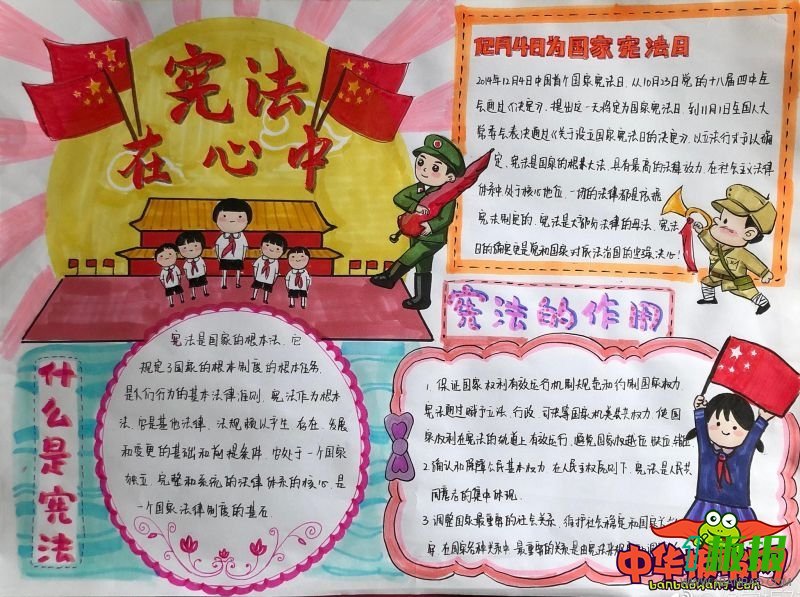 宪法
在心中
12月4日为国家宪法日
2014年12月4日中国首个国家宪法日,从10月23日党的十八届四中全
会通过《决定》,提出这一天将定为国家宪法日,到11月1日全国人大
常委会表决通过《关于设立国家宪法日的决定》,以立法行式予以确
定、宪法是国家的根本大法,具有最高的法律效力,在社会主义法律
体系中处于核心地位,一切的法律都是依据
宪法制定的、宪法是大部的法律的母法、宪法
日的确定更是党和国家对依法治国的坚强决心!
什么是宪法
宪法是国家的根本法、它
规定了国家的根本制度的根本任务、
是人们行为的基本法律准则、宪法作为根本
法、它是其他法律、法规赖以产生 存在、发展
和变更的基础和前提条件,它处于一个国家
独立 完整和系统的法律体系的核心,是
一个国家法律制度的基石
宪法的作用
1. 保证国家权利有效运行机制规范和约制国家权力
宪法通过赋予立法、行政 司法等国家机关公共权力 使国
家权利在宪法的轨道上有效运行,避免国家权越位 缺位 错
2.确认和保障公民基本权力.在人民主权原则下.宪法是人民共
同意志的集中体现
3.调整国家最重要的社会关系,维护社会稳定和国家
在国家各种关系中.最重要的关系是由宪法来
中华
板报网
banbaowang.com